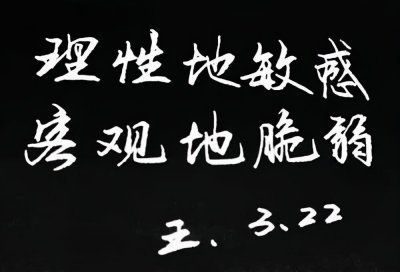 理性地敏感
客观地脆弱
王、3.22